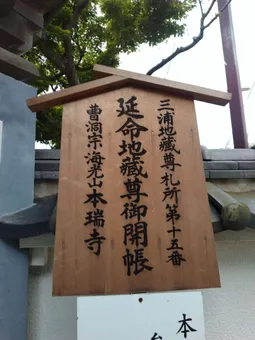 三浦地蔵尊札所第十五番
延命地蔵尊御開帳
曹洞宗海光山本瑞寺
本